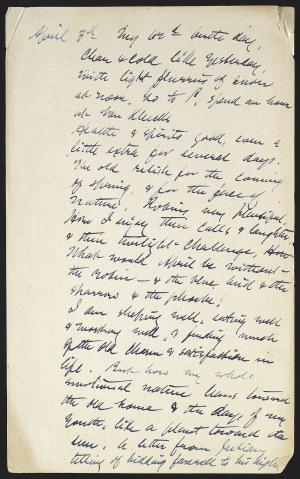 April 3d. My 62d birth day.
Clear & cold like yesterday,
with light flurries of snow
at noon. Go to P. spend an hour
at Van
Health & spirits good, even a
little extra for several days.
The old relish for the coming
of spring, & for the face of
Nature. Robins very plentiful.
How I enjoy their calls & laughter
& their twilight challenge. How
What would April be without
the Robin — & the blue bird & the
sparrow & the phoebe!
I am sleeping well, eating well
& working well, & finding much
of the old charm & satisfaction in
life. But how my whole
emotional nature leans toward
the old home & the days of my
youth, like a plant toward the
sun. A letter from Julian
telling of bidding farewell to his high